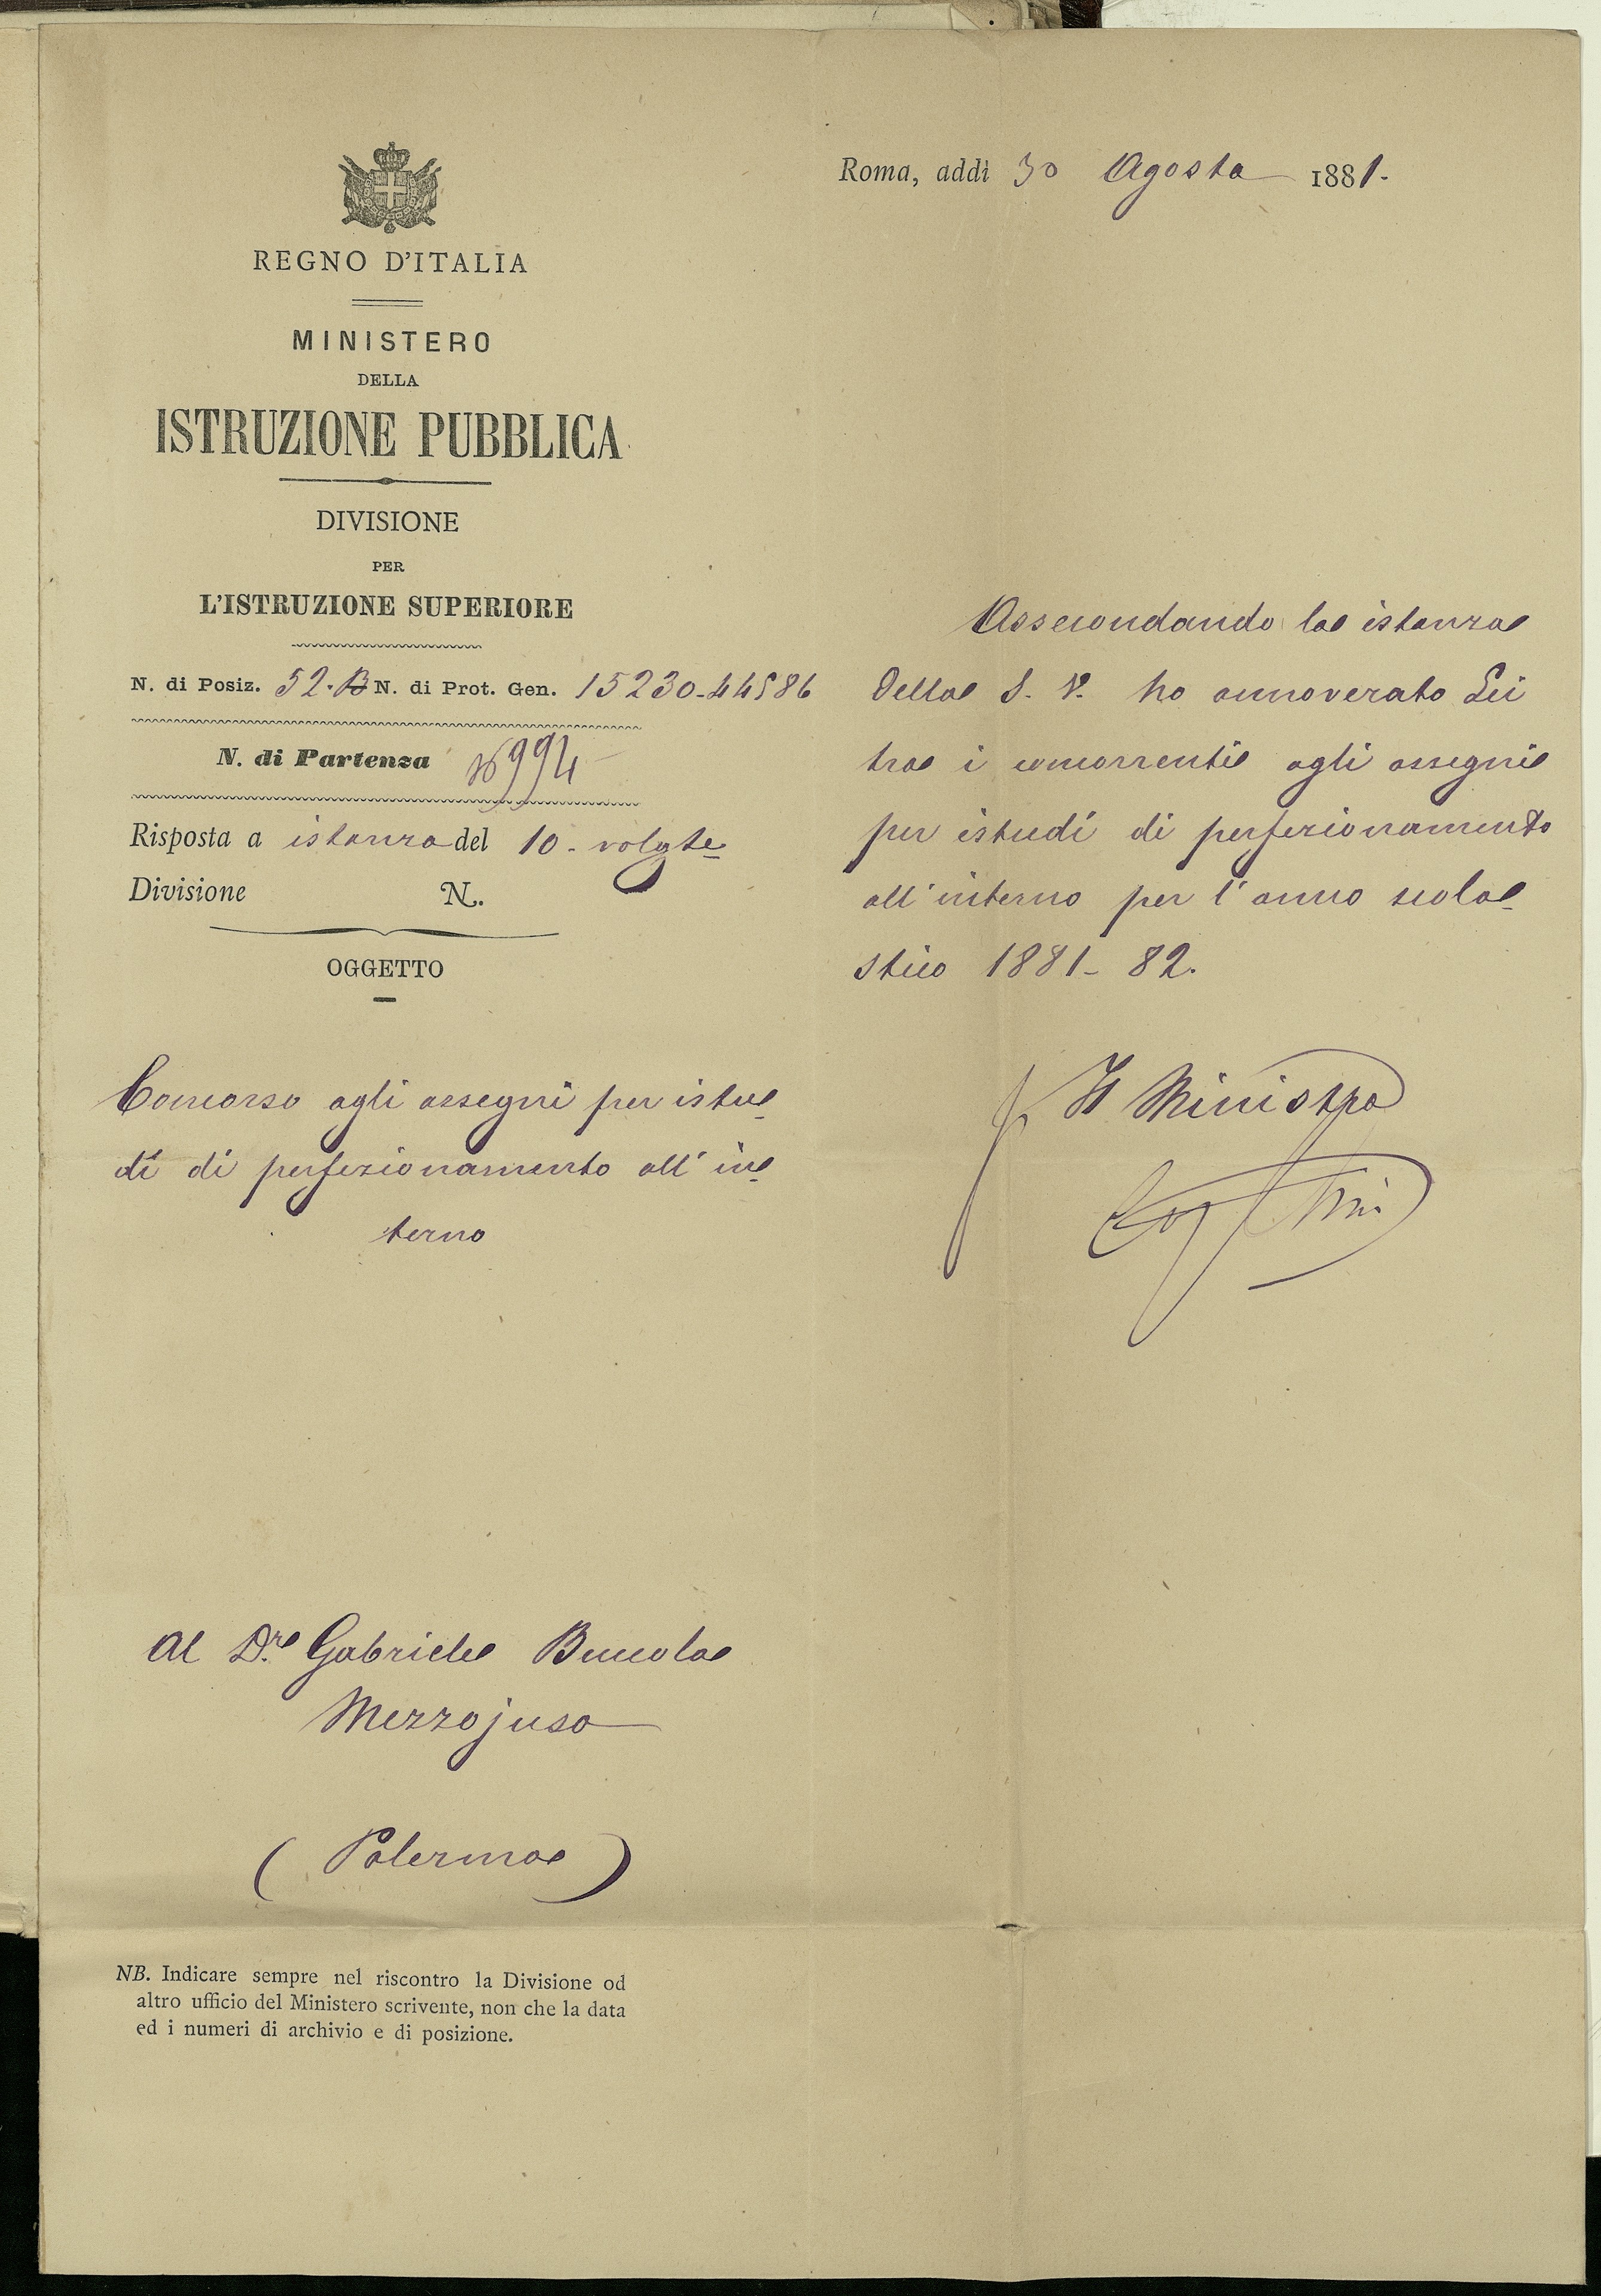 REGNO D'ITALIA
MINISTERO
DELLA
ISTRUZIONE PUBBLICA
DIVISIONE
PER
L'ISTRUZIONE SUPERIORE
N. di Posiz. 52. B N. di Prot. Gen. 15230-44586
N. di Partenza 994
Risposta a istanza del 10. volgte
Divisione N.
OGGETTO
Concorso agli assegni per istu-
di di perfezionamento all'in-
terno
Al D.re Gabriele Buccola
Mezzojuso
(Palermo)
NB. Indicare sempre nel riscontro la Divisione od
altro ufficio del Ministero scrivente, non che la data
ed i numeri di archivio e di posizione.
Roma, addì 30 Agosto 1881.
Assecondando la istanza
della S. V. ho annoverato Lei
tra i concorrenti agli assegni
per istudi di perfezionamento
all'interno per l'anno scola-
stico 1881-82.
Il Ministro